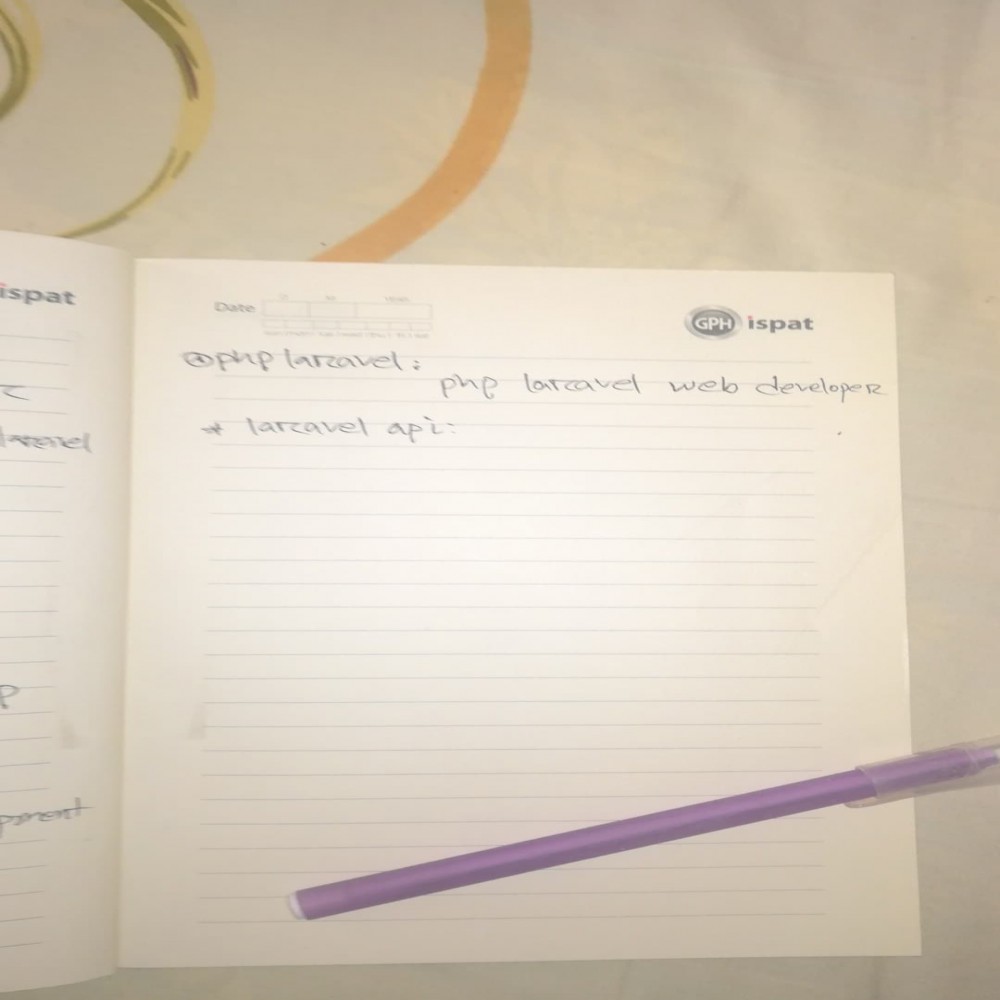 ispat
laravel
P
pment
Date
GPH ispat
php laravel:
php laravel web developer
* laravel api: